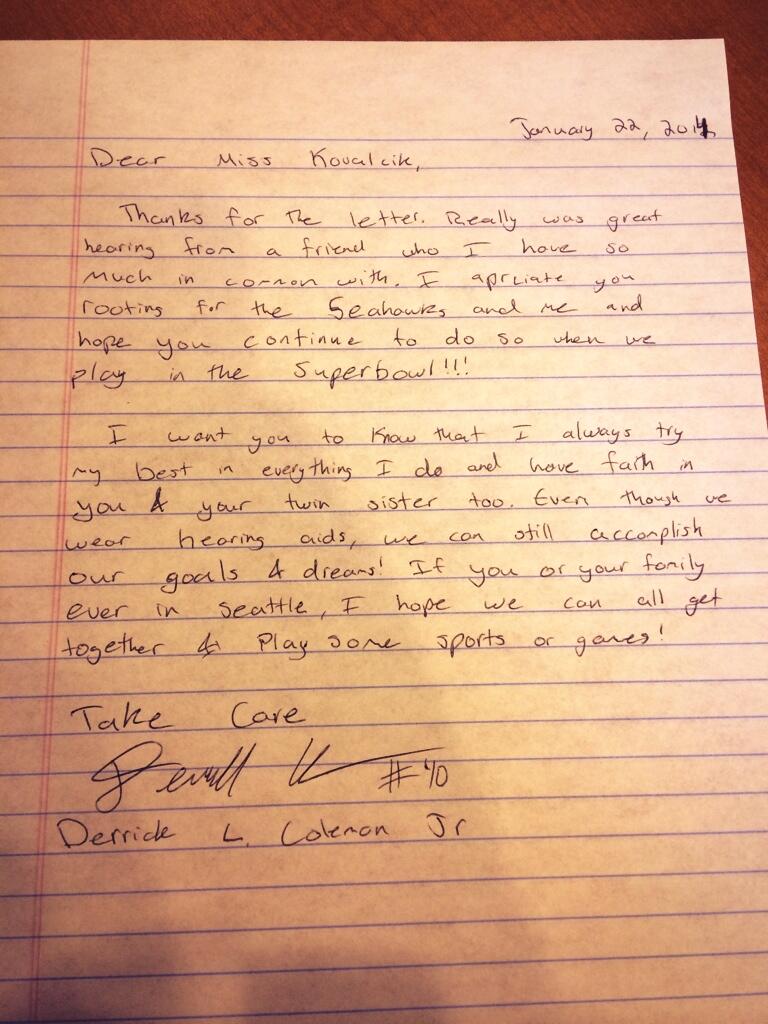 January 22, 2014
Dear Miss Kovalcik,
Thanks for the letter. Really was great
hearing from a friend who I have so
much in common with. I aprciate you
rooting for the Seahawks and me and
hope you continue to do so when we
play in the Superbowl!!!
I want you to know that I always try
my best in everything I do and have faith in
you & your twin sister too. Even though we
wear hearing aids, we can still accomplish
our goals & dreams! If you or your family
ever in Seattle, I hope we can all get
together & Play some sports or games!
Take Care
#40
Derrick L. Coleman Jr